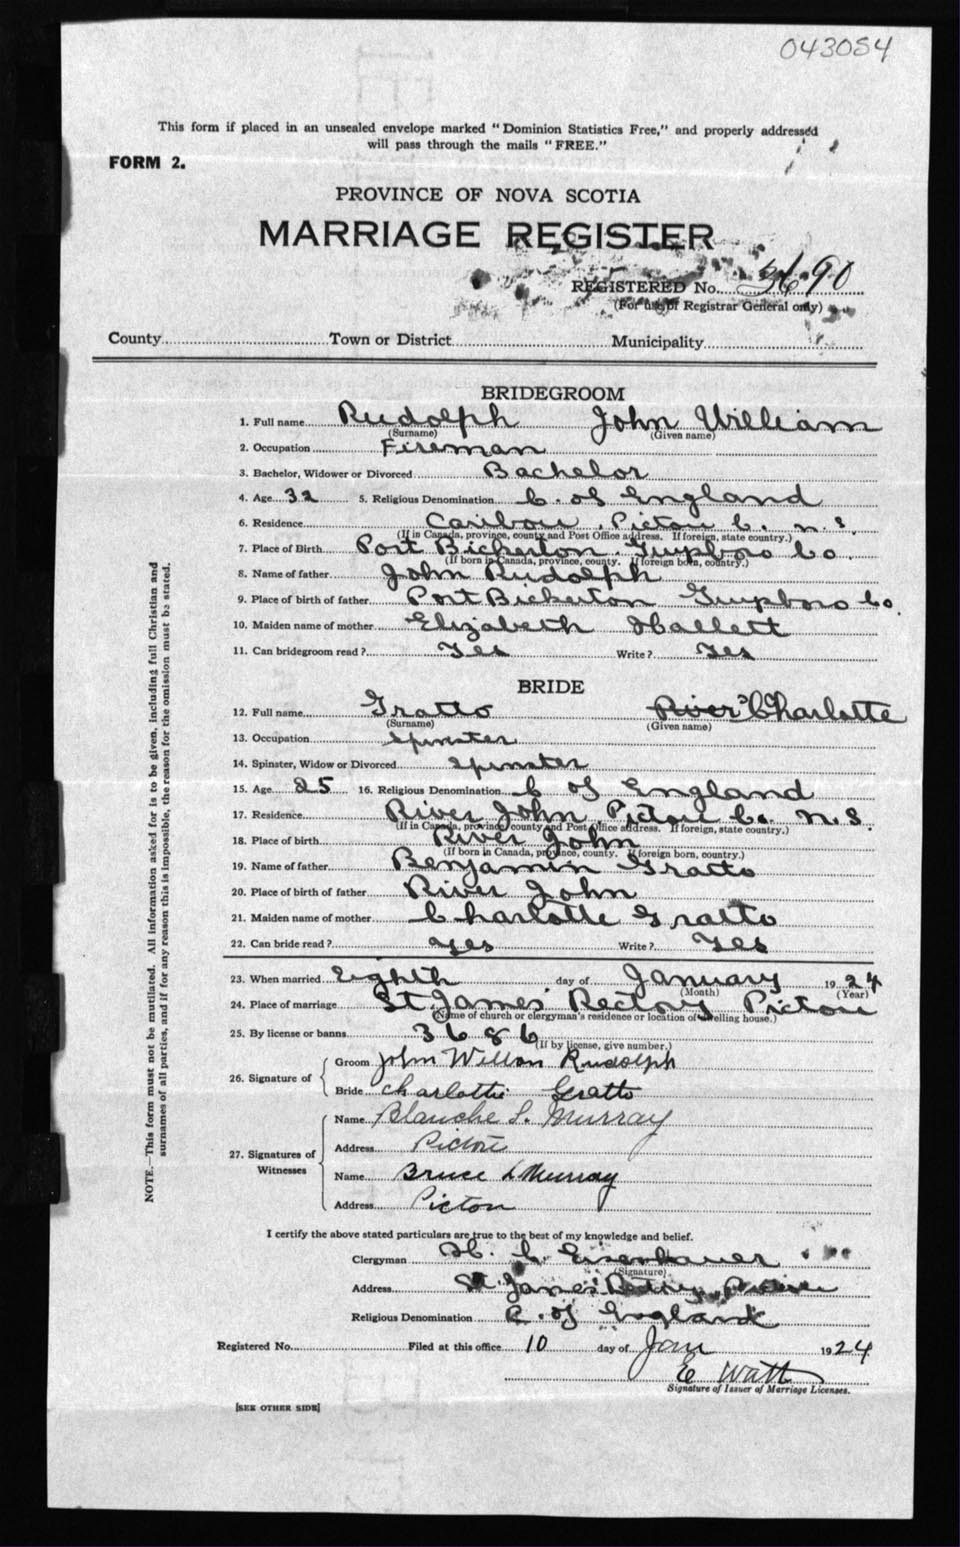 043054
This form if placed in an unsealed envelope marked "Dominion Statistics Free," and properly addressed
will pass through the mails "FREE."
FORM 2.
PROVINCE OF NOVA SCOTIA
MARRIAGE REGISTER
REGISTERED No. 3690
(For use of Registrar General only)
County Town or District Municipality
BRIDEGROOM
1. Full name Rudolph John William
(Surname) (Given name)
2. Occupation Fireman
3. Bachelor, Widower or Divorced Bachelor
4. Age 32 5. Religious Denomination C. of England
6. Residence Caribou, Pictou C. N.S
(If in Canada, province, county and Post Office address. If foreign, state country.)
7. Place of Birth Port Bickerton Guysboro Co
(If born in Canada, province, county. If foreign born, country.)
8. Name of father John Rudolph
9. Place of birth of father Port Bickerton Guysboro Co.
10. Maiden name of mother Elizabeth Hallett
11. Can bridegroom read? Yes Write? Yes
BRIDE
12. Full name Gratto River Charlotte
(Surname) (Given name)
13. Occupation Spinster
14. Spinster, Widow or Divorced Spinster
15. Age 25 16. Religious Denomination C of England
17. Residence River John Pictou Co. N.S.
(If in Canada, province, county and Post Office address. If foreign, state country.)
18. Place of birth River John
(If born in Canada, province, county. If foreign born, country.)
19. Name of father Benjamin Gratto
20. Place of birth of father River John
21. Maiden name of mother Charlotte Gratto
22. Can bride read? Yes Write? Yes
23. When married Eighth day of January 1924
(Month) (Year)
24. Place of marriage St James' Rectory Pictou
(Name of church or clergyman's residence or location of dwelling house.)
25. By license or banns 3686
(If by license, give number.)
26. Signature of
Groom John Rudolph
Bride Charlotte Gratto
27. Signatures of Witnesses
Name Blanche S. Murray
Address Pictou
Name Bruce Murray
Address Pictou
I certify the above stated particulars are true to the best of my knowledge and belief.
Clergyman H. C. Eisenhauer
(Signature)
Address St. James' Rectory, Pictou
Religious Denomination C. of England
Registered No. Filed at this office 10 day of Jan 1924
E Watt
Signature of Issuer of Marriage Licenses.
[SEE OTHER SIDE]
NOTE.—This form must not be mutilated. All information asked for is to be given, including full Christian and
surnames of all parties, and if for any reason this is impossible, the reason for the omission must be stated.